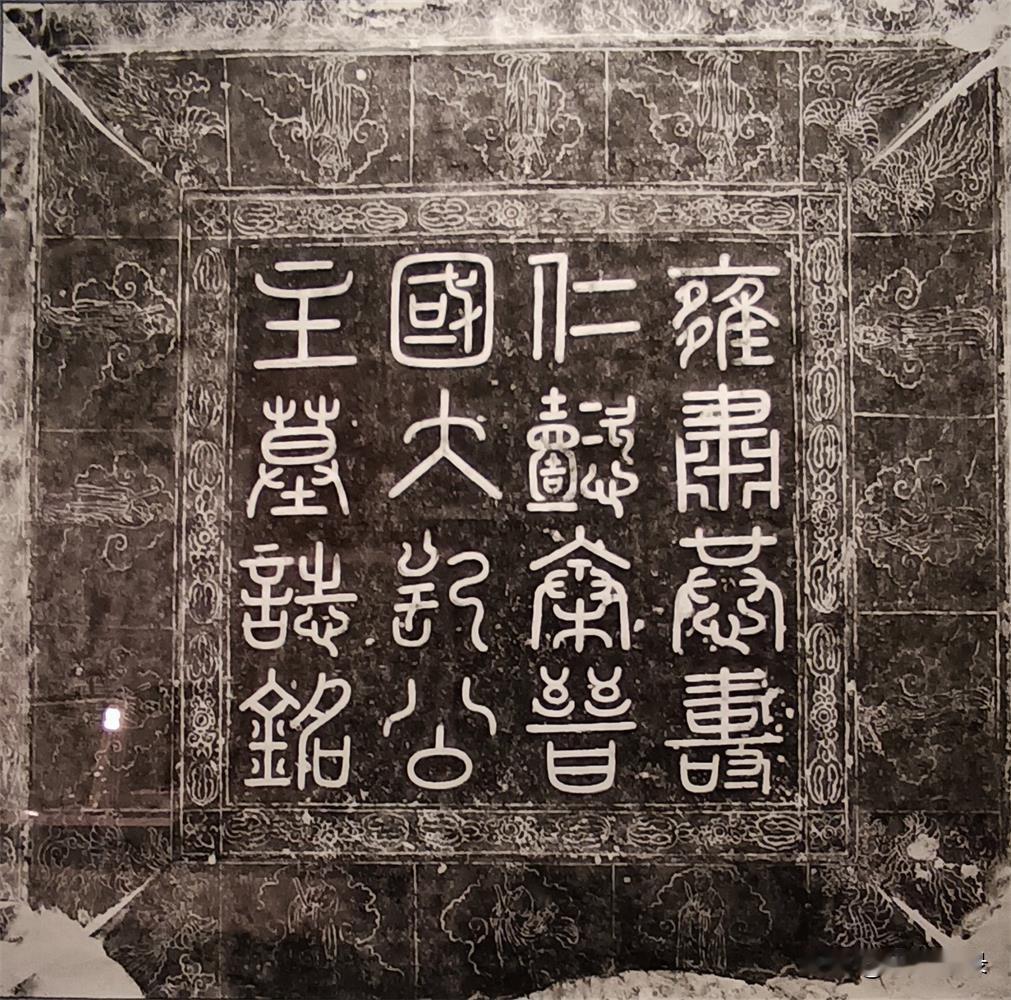 雍肅恭壽
仁懿秦晉
國大長公
主墓誌銘